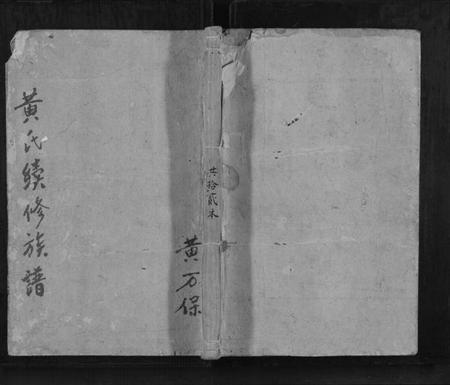 黄氏續修族譜
黄万保
共拾貳本